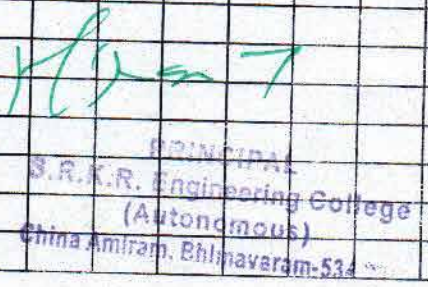 PRINCIPAL
S.R.K.R. Engineering College
(Autonomous)
China Amiram, Bhimavaram-534